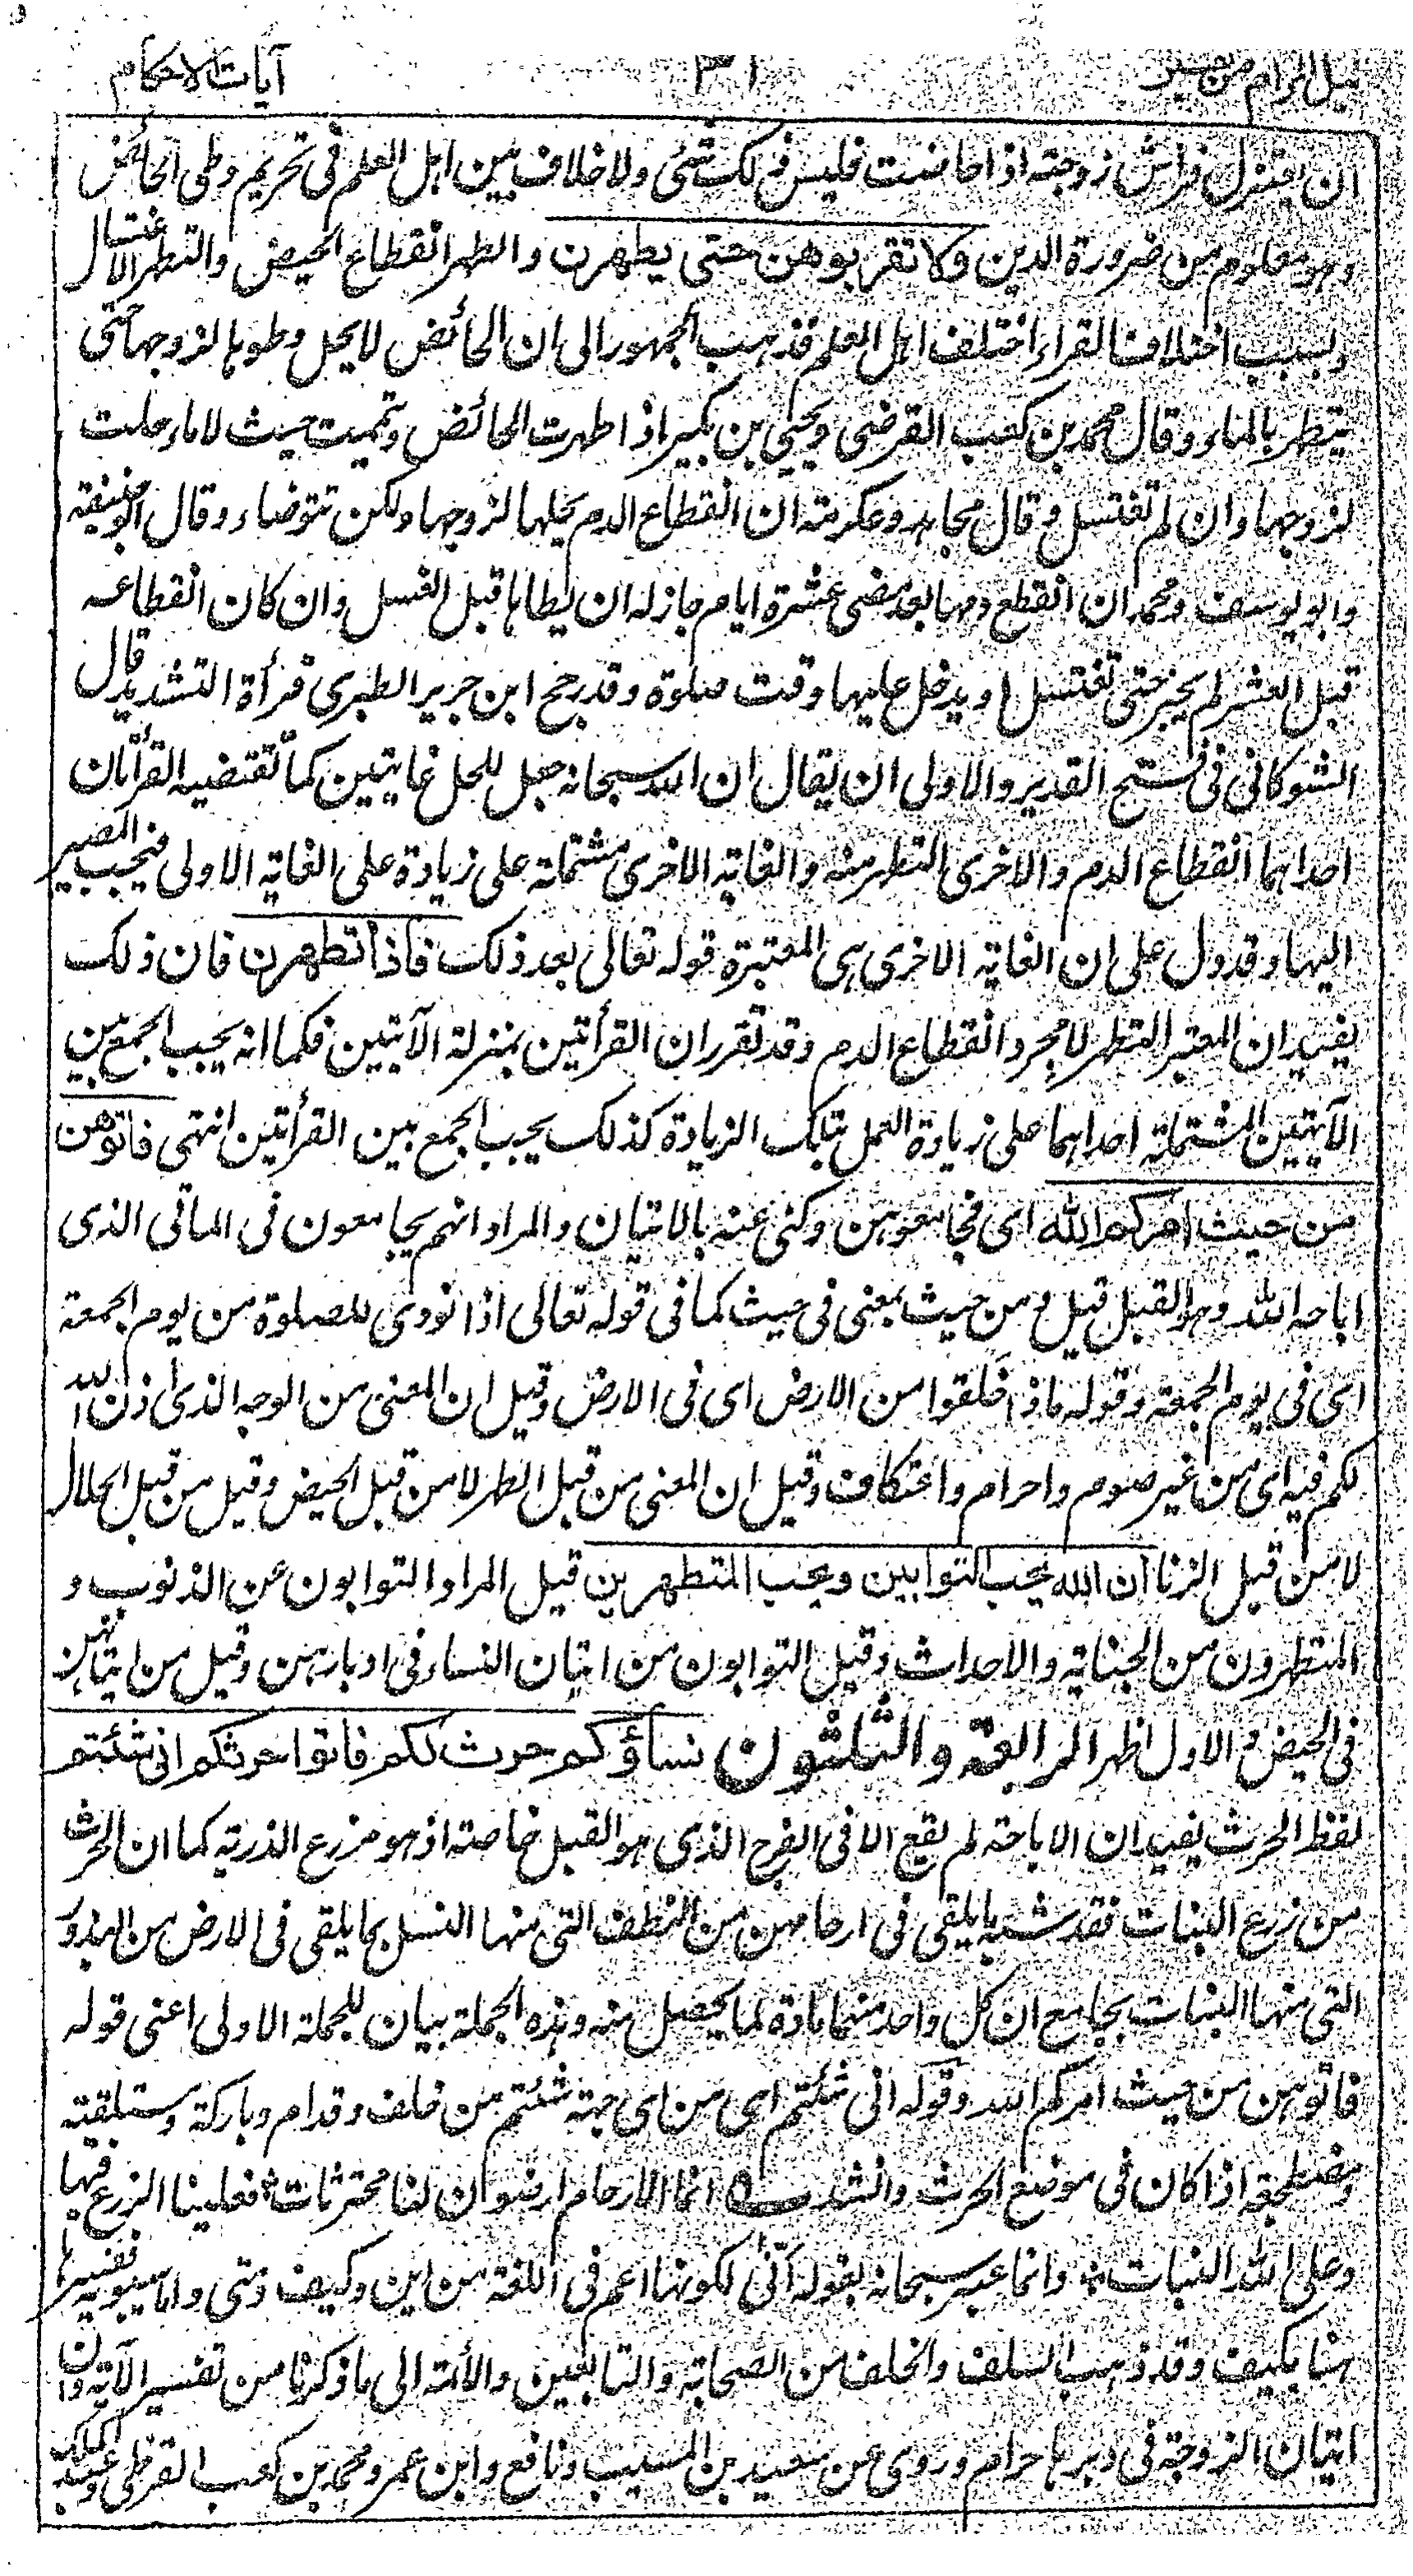 نيل المرام من تفسير ٣١ آيات الاحكام
ان يعتزل فراش زوجته اذا حاضت فليس ذلك بشئ ولا خلاف بين اهل العلم فى تحريم وطى الحائض
وهو معلوم من ضرورة الدين ولا تقربوهن حتى يطهرن والطهر انقطاع الحيض والتطهر الاغتسال
وبسبب اختلاف القراء اختلف اهل العلم فذهب الجمهور الى ان الحائض لا يحل وطوها لزوجها حتى
يتطهر بالماء وقال محمد بن كعب القرضى ويحيى بن بكير اذا طهرت الحائض وتيممت حيث لا ماء حلت
لزوجها وان لم تغتسل وقال مجاهد وعكرمة ان انقطاع الدم يحلها لزوجها ولكن تتوضاء وقال ابو حنيفة
وابو يوسف ومحمد ان انقطع دمها بعد مضى عشرة ايام جاز له ان يطاها قبل الغسل وان كان انقطاعه
قبل العشر لم يجز حتى تغتسل او يدخل عليها وقت صلوة وقد رجح ابن جرير الطبرى قرأة التشديد قال
الشوكانى فى فتح القدير والاولى ان يقال ان الله سبحانه جعل للحل غايتين كما تقتضيه القرأتان
احداهما انقطاع الدم والاخرى التطهر منه والغاية الاخرى مشتملة على زيادة على الغاية الاولى فيجب المصير
اليها وقد دل على ان الغاية الاخرى هى المعتبرة قوله تعالى بعد ذلك فاذا تطهرن فان ذلك
يفيد ان المعتبر التطهر لا مجرد انقطاع الدم وقد تقرر ان القرأتين بمنزلة الآيتين فكما انه يجب الجمع بين
الآيتين المشتملة احداهما على زيادة العمل بتلك الزيادة كذلك يجب الجمع بين القرأتين انتهى فاتوهن
من حيث امركم الله اى فجامعوهن وكنى عنه بالاتيان والمراد انهم يجامعون فى الماتى الذى
اباحه الله وهو القبل قيل ومن حيث بمعنى فى حيث كما فى قوله تعالى اذا نودى للصلوة من يوم الجمعة
اى فى يوم الجمعة وقوله ماذا خلقوا من الارض اى فى الارض وقيل ان المعنى من الوجه الذى اذن الله
لكم فيه اى من غير صوم واحرام واعتكاف وقيل ان المعنى من قبل الطهر لا من قبل الحيض وقيل من قبل الحلال
لا من قبل الزنا ان الله يحب التوابين ويحب المتطهرين قيل المراد التوابون من الذنوب و
المتطهرون من الجنابة والاحداث وقيل التوابون من اتيان النساء فى ادبارهن وقيل من اتيانهن
فى الحيض والاول اظهر الرابعة والثلثون نساؤكم حرث لكم فاتوا حرثكم انى شئتم
لفظ الحرث يفيد ان الاباحة لم تقع الا فى الفرج الذى هو القبل خاصة اذ هو مزرع الذرية كما ان الحرث
من زرع النبات فقد شبه ما يلقى فى ارحامهن من النطف التى منها النسل بما يلقى فى الارض من البذور
التى منها النبات بجامع ان كل واحد منهما مادة لما يحصل منه وهذه الجملة بيان للجملة الاولى اعنى قوله
فاتوهن من حيث امركم الله وقوله انى شئتم اى من اى جهة شئتم من خلف وقدام وباركة ومستلقية
ومضطجعة اذا كان فى موضع الحرث وانشد انما الارحام ارضو ان لنا محترثات فعلينا الزرع فيها
وعلى الله النبات وانما عبر سبحانه بقوله انّى لكونها اعم فى اللغة من اين وكيف ومتى واما سيبويه ففسرها
هنا بكيف وقد ذهب السلف والخلف من الصحابة والتابعين والأئمة الى ما ذكرنا من تفسير الآية وان
اتيان الزوجة فى دبرها حرام وروى عن سعيد بن المسيب ونافع وابن عمر ومحمد بن كعب القرظى وعبد الملك